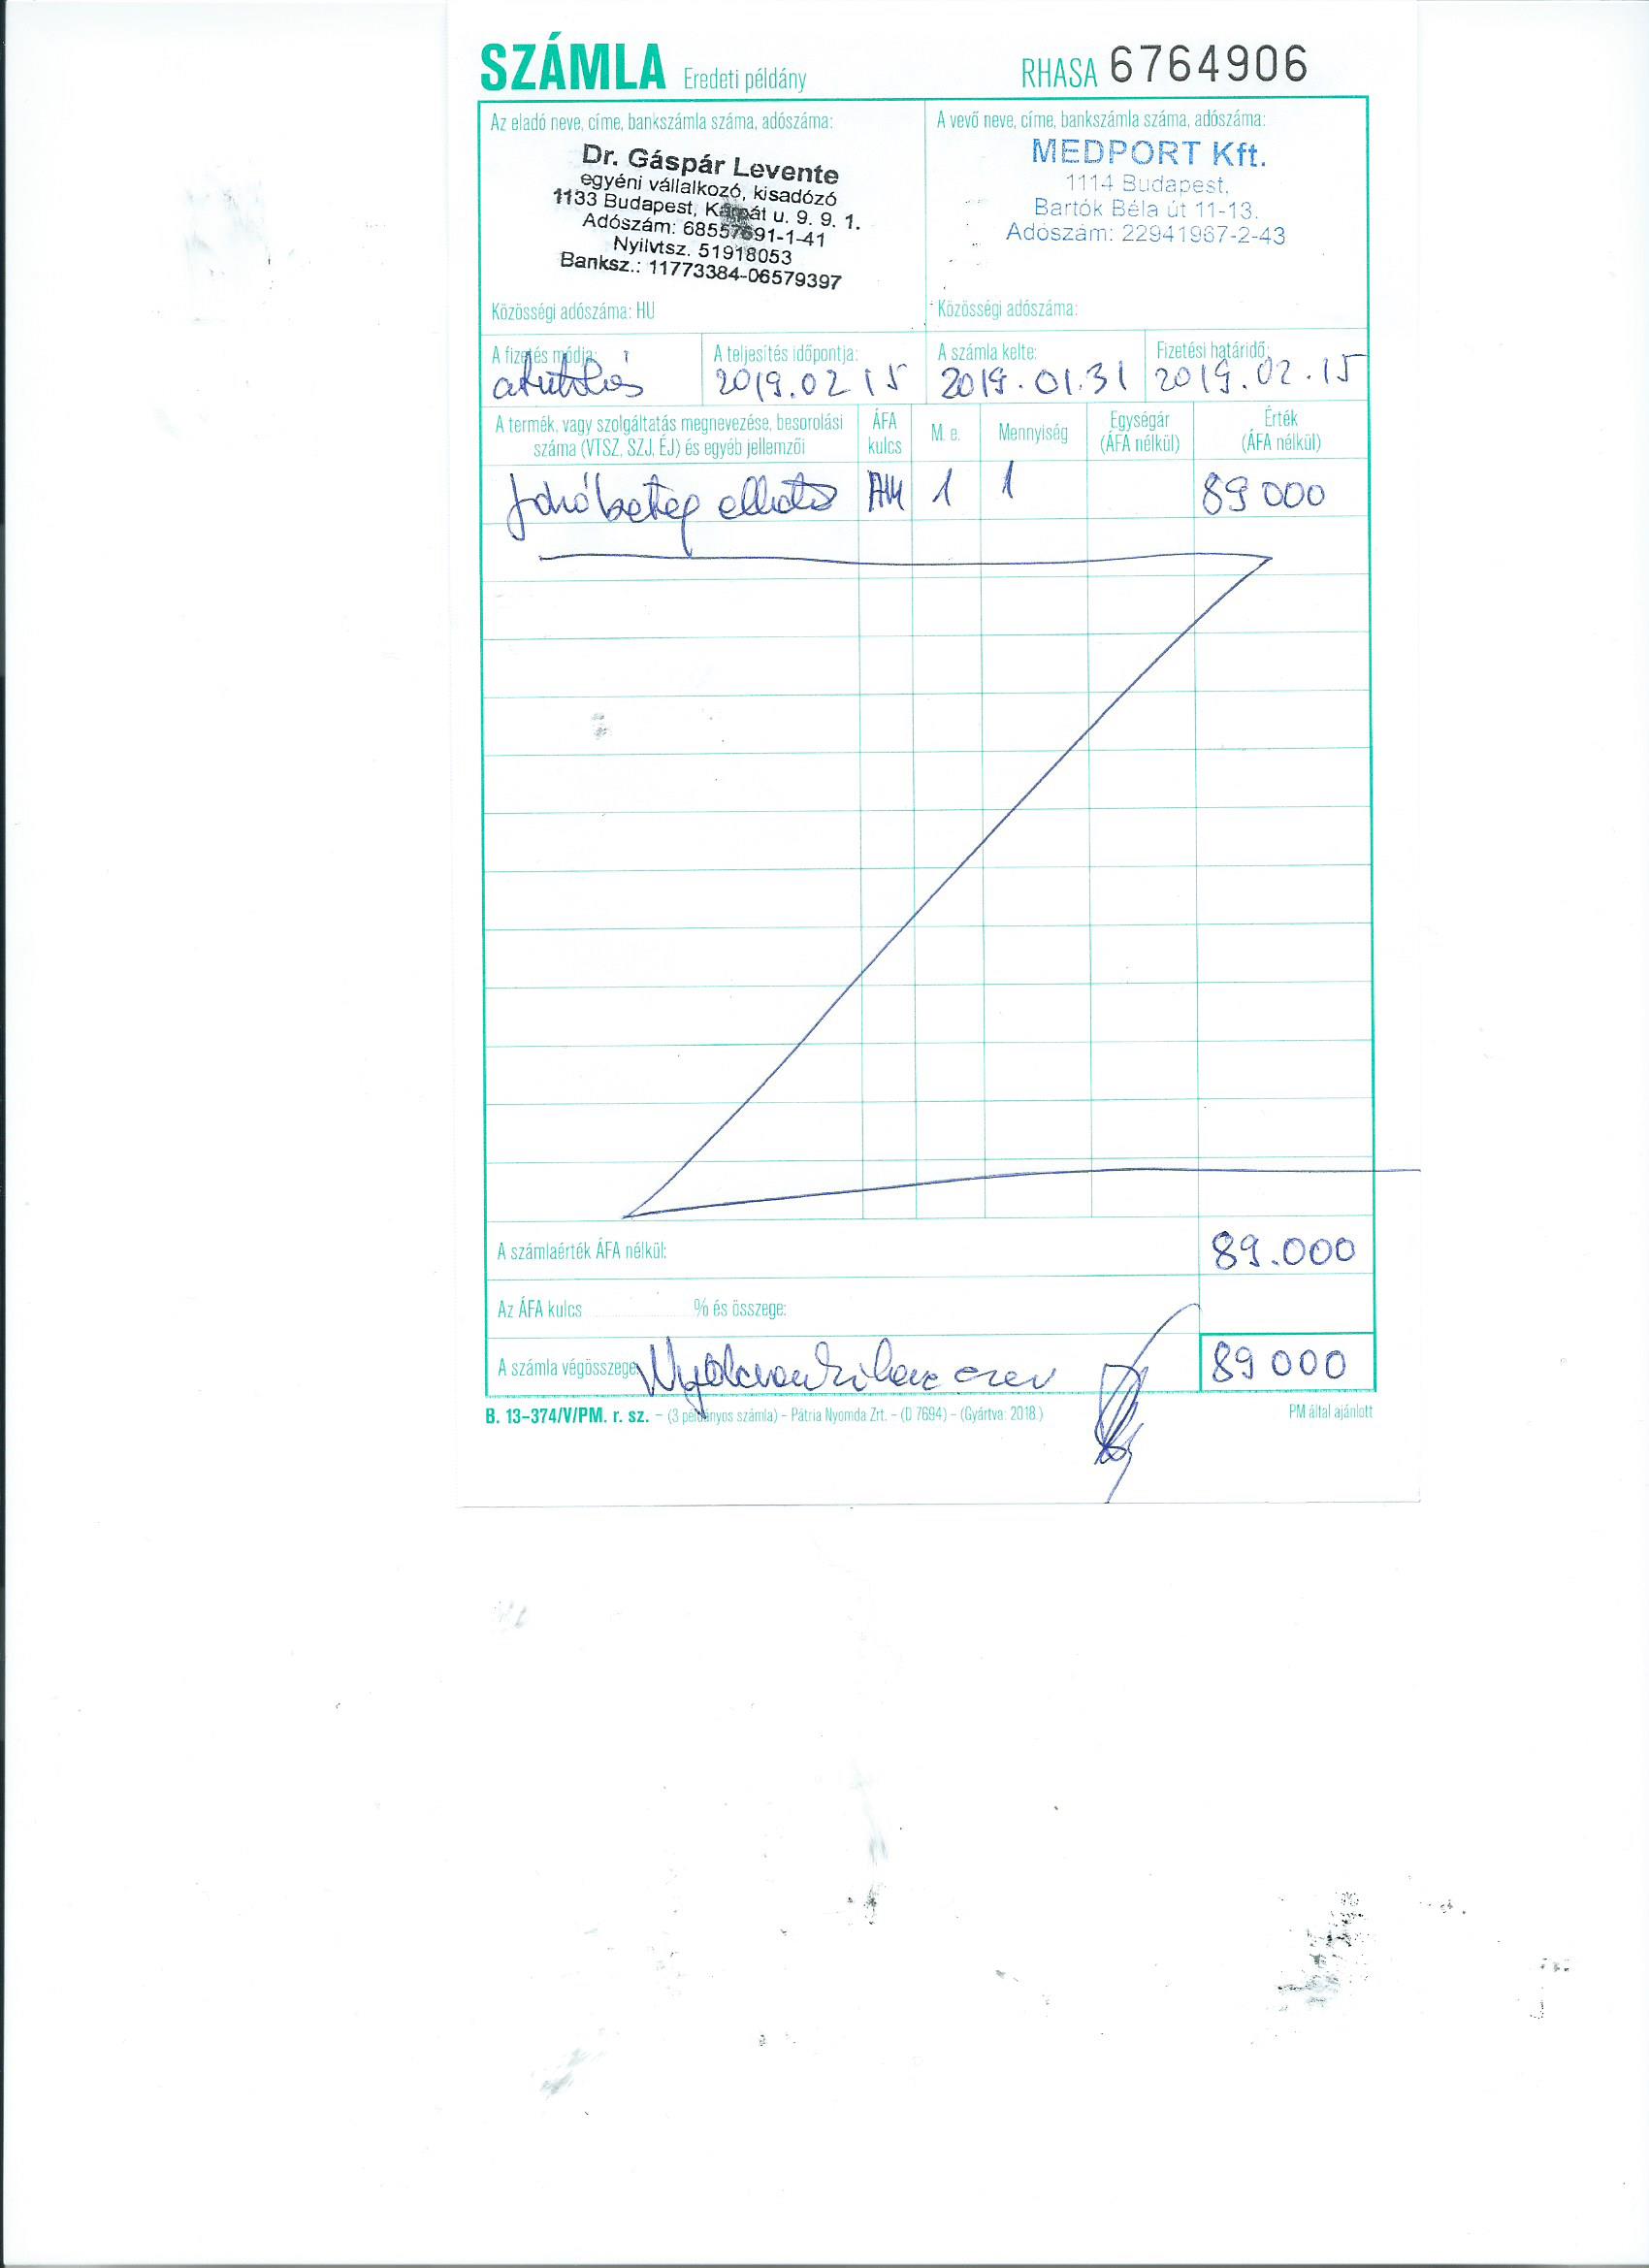 SZÁMLA Eredeti példány RHASA 6764906
Az eladó neve, címe, bankszámla száma, adószáma:
Dr. Gáspár Levente
egyéni vállalkozó, kisadózó
1133 Budapest, Kárpát u. 9. 9. 1.
Adószám: 68557691-1-41
Nyilvtsz. 51918053
Banksz.: 11773384-06579397
Közösségi adószáma: HU
A vevő neve, címe, bankszámla száma, adószáma:
MEDPORT Kft.
1114 Budapest,
Bartók Béla út 11-13.
Adószám: 22941967-2-43
Közösségi adószáma:
A fizetés módja: átutalás
A teljesítés időpontja: 2019.02 15
A számla kelte: 2019.01.31
Fizetési határidő: 2019.02.15
A termék, vagy szolgáltatás megnevezése, besorolási
száma (VTSZ, SZJ, ÉJ) és egyéb jellemzői
ÁFA
kulcs
M. e.
Mennyiség
Egységár
(ÁFA nélkül)
Érték
(ÁFA nélkül)
Járóbeteg ellátás AM 1 1 89 000
A számlaérték ÁFA nélkül: 89.000
Az ÁFA kulcs % és összege:
A számla végösszege: Nyolcvankilenc ezer 89 000
B. 13-374/V/PM. r. sz. – (3 példányos számla) – Pátria Nyomda Zrt. – (D 7694) – (Gyártva: 2018.) PM által ajánlott